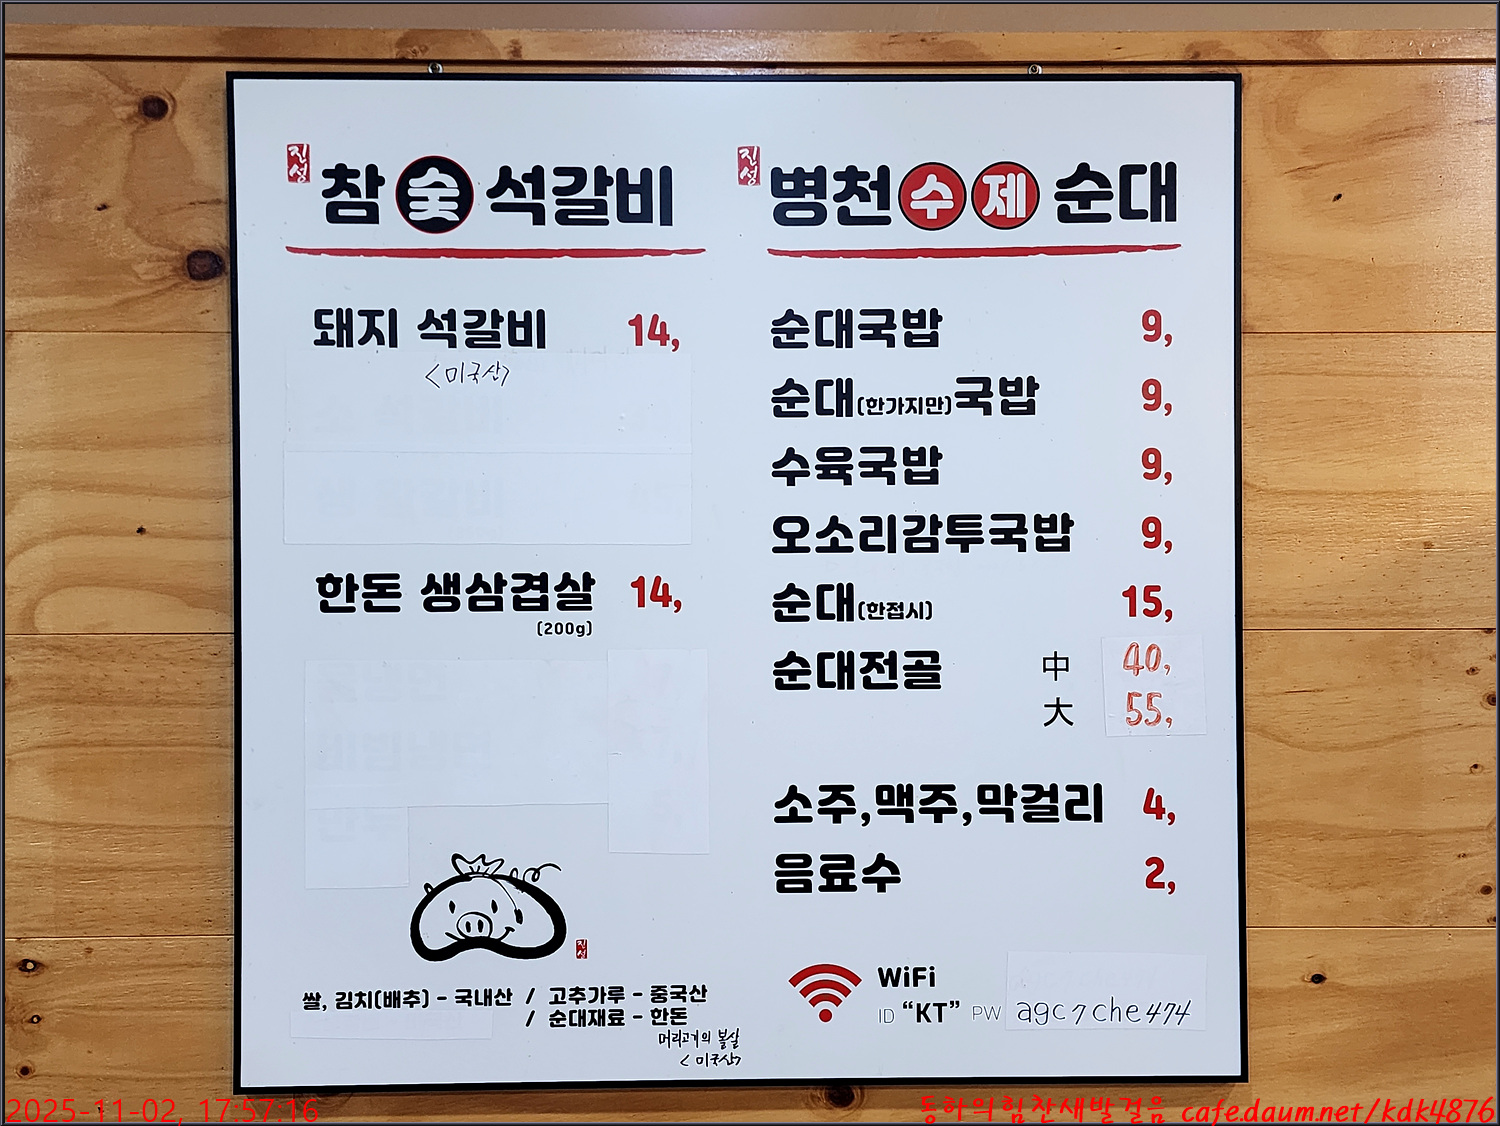 진성
참숯석갈비
돼지 석갈비 14,
<미국산>
한돈 생삼겹살 14,
(200g)
진성
쌀, 김치(배추) - 국내산 / 고추가루 - 중국산
/ 순대재료 - 한돈
머리고기의 볼살
<미국산>
진성
병천수제순대
순대국밥 9,
순대(한가지만)국밥 9,
수육국밥 9,
오소리감투국밥 9,
순대(한접시) 15,
순대전골 中 40,
大 55,
소주,맥주,막걸리 4,
음료수 2,
WiFi
ID “KT” PW agc7che474
2025-11-02, 17:57:16
동하의힘찬새발걸음 cafe.daum.net/kdk4876